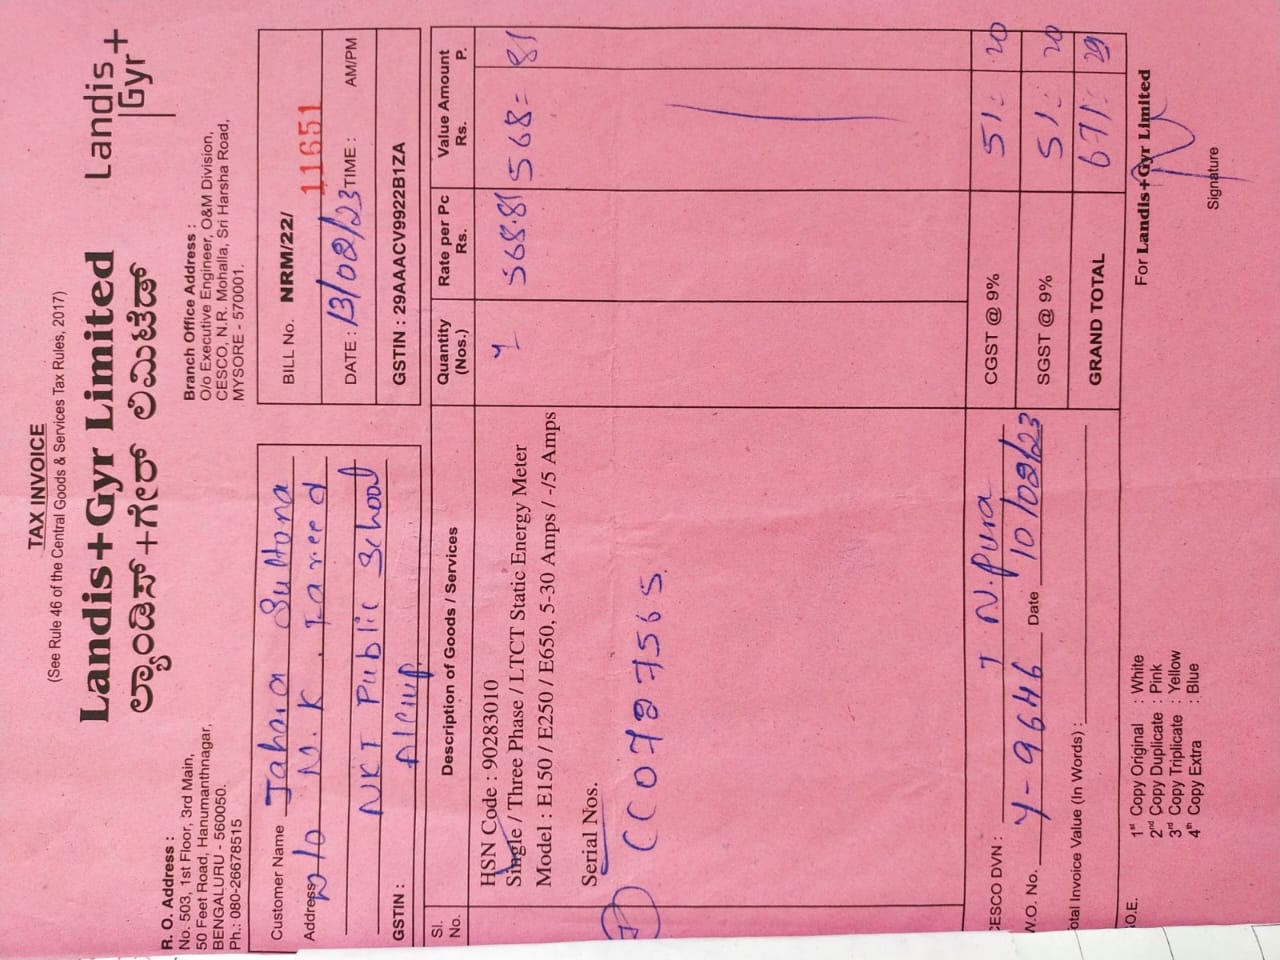 TAX INVOICE
(See Rule 46 of the Central Goods & Services Tax Rules, 2017)
Landis+Gyr Limited
ಲ್ಯಾಂಡಿಸ್+ಗೇರ್ ಲಿಮಿಟೆಡ್
Landis
Gyr+
R. O. Address :
No. 503, 1st Floor, 3rd Main,
50 Feet Road, Hanumanthnagar,
BENGALURU - 560050.
Ph.: 080-26678515
Branch Office Address :
O/o Executive Engineer, O&M Division,
CESCO, N.R. Mohalla, Sri Harsha Road,
MYSORE - 570001.
Customer Name Jahara Sultana
Address D/o M.K. Fareed
NKF Public School
GSTIN :
BILL No. NRM/22/ 11651
DATE : 13/02/23 TIME : AM/PM
GSTIN : 29AAACV9922B1ZA
Sl. No. Description of Goods / Services Quantity (Nos.) Rate per Pc Rs. Value Amount Rs. P.
HSN Code : 90283010
Single / Three Phase / LTCT Static Energy Meter 1 568.81 568=81
Model : E150 / E250 / E650, 5-30 Amps / -/5 Amps
Serial Nos.
CC0727565
CESCO DVN : T N.Pura
W.O. No. Y-9646 Date 10/02/23
Total Invoice Value (In Words) :
CGST @ 9% 51=20
SGST @ 9% 51=20
GRAND TOTAL 671=29
For Landis+Gyr Limited
Signature
1st Copy Original : White
2nd Copy Duplicate : Pink
3rd Copy Triplicate : Yellow
4th Copy Extra : Blue
O.E.